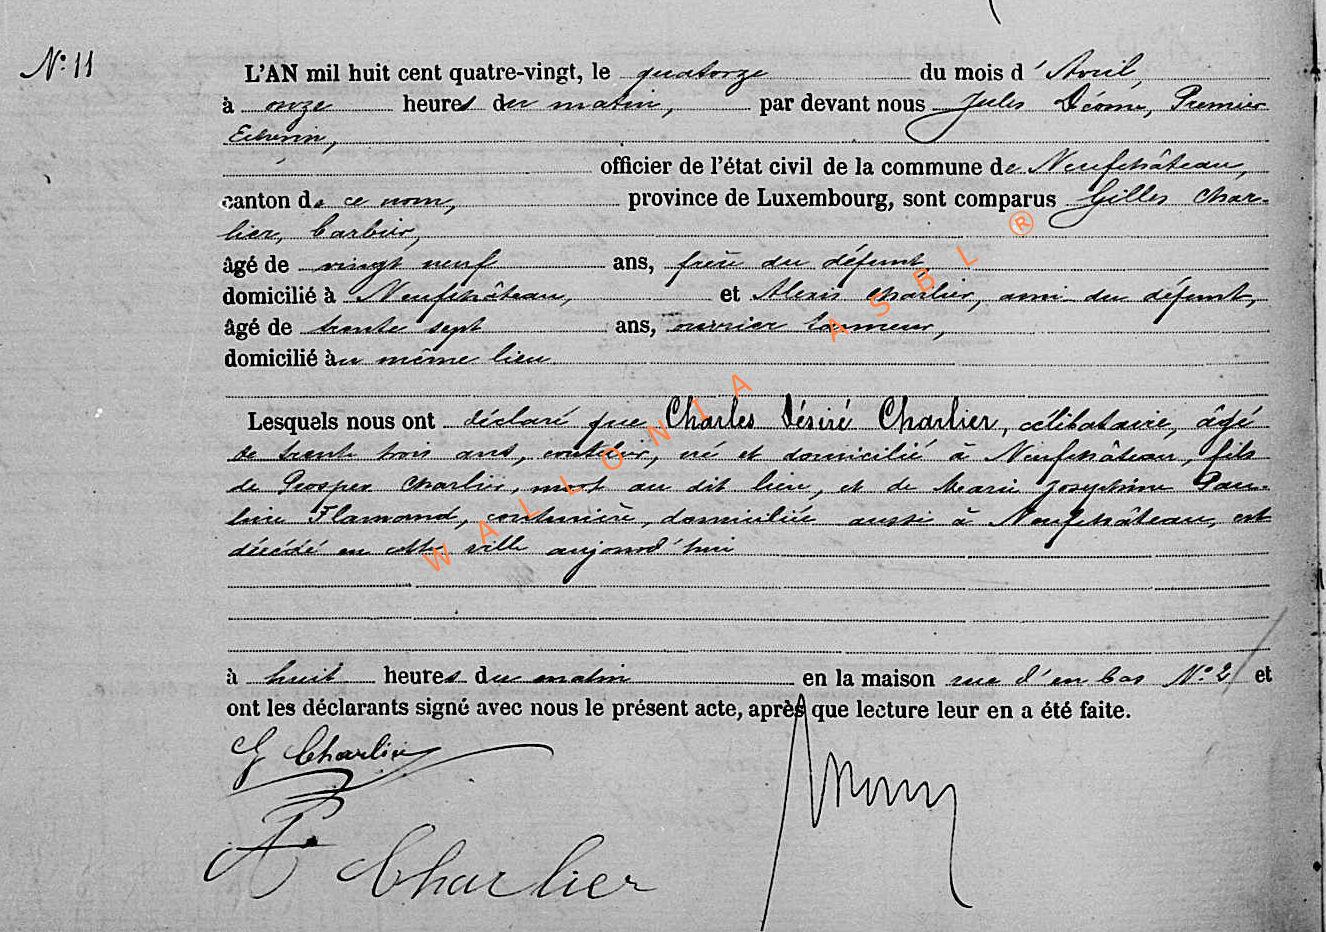 N° 11
L'AN mil huit cent quatre-vingt, le quatorze du mois d'Avril,
à onze heures du matin, par devant nous Jules Premier
Echevin,
officier de l'état civil de la commune de Neufchâteau,
canton de ce nom, province de Luxembourg, sont comparus Gilles Char-
lier, barbier,
âgé de vingt neuf ans, frère du défunt,
domicilié à Neufchâteau, et Alexis Charlier, ami du défunt,
âgé de trente sept ans, ouvrier tanneur,
domicilié au même lieu
Lesquels nous ont déclaré que Charles Désiré Charlier, célibataire, âgé
de trente trois ans, né et domicilié à Neufchâteau, fils
de Prosper Charlier, mort au dit lieu, et de Marie Josephine Pau-
line Flamand, couturière, domiciliée aussi à Neufchâteau, est
décédé en cette ville aujourd'hui
à huit heures du matin en la maison rue d'en bas N° 2 et
ont les déclarants signé avec nous le présent acte, après que lecture leur en a été faite.
G Charlier
A Charlier
WALLONIA ASBL ®